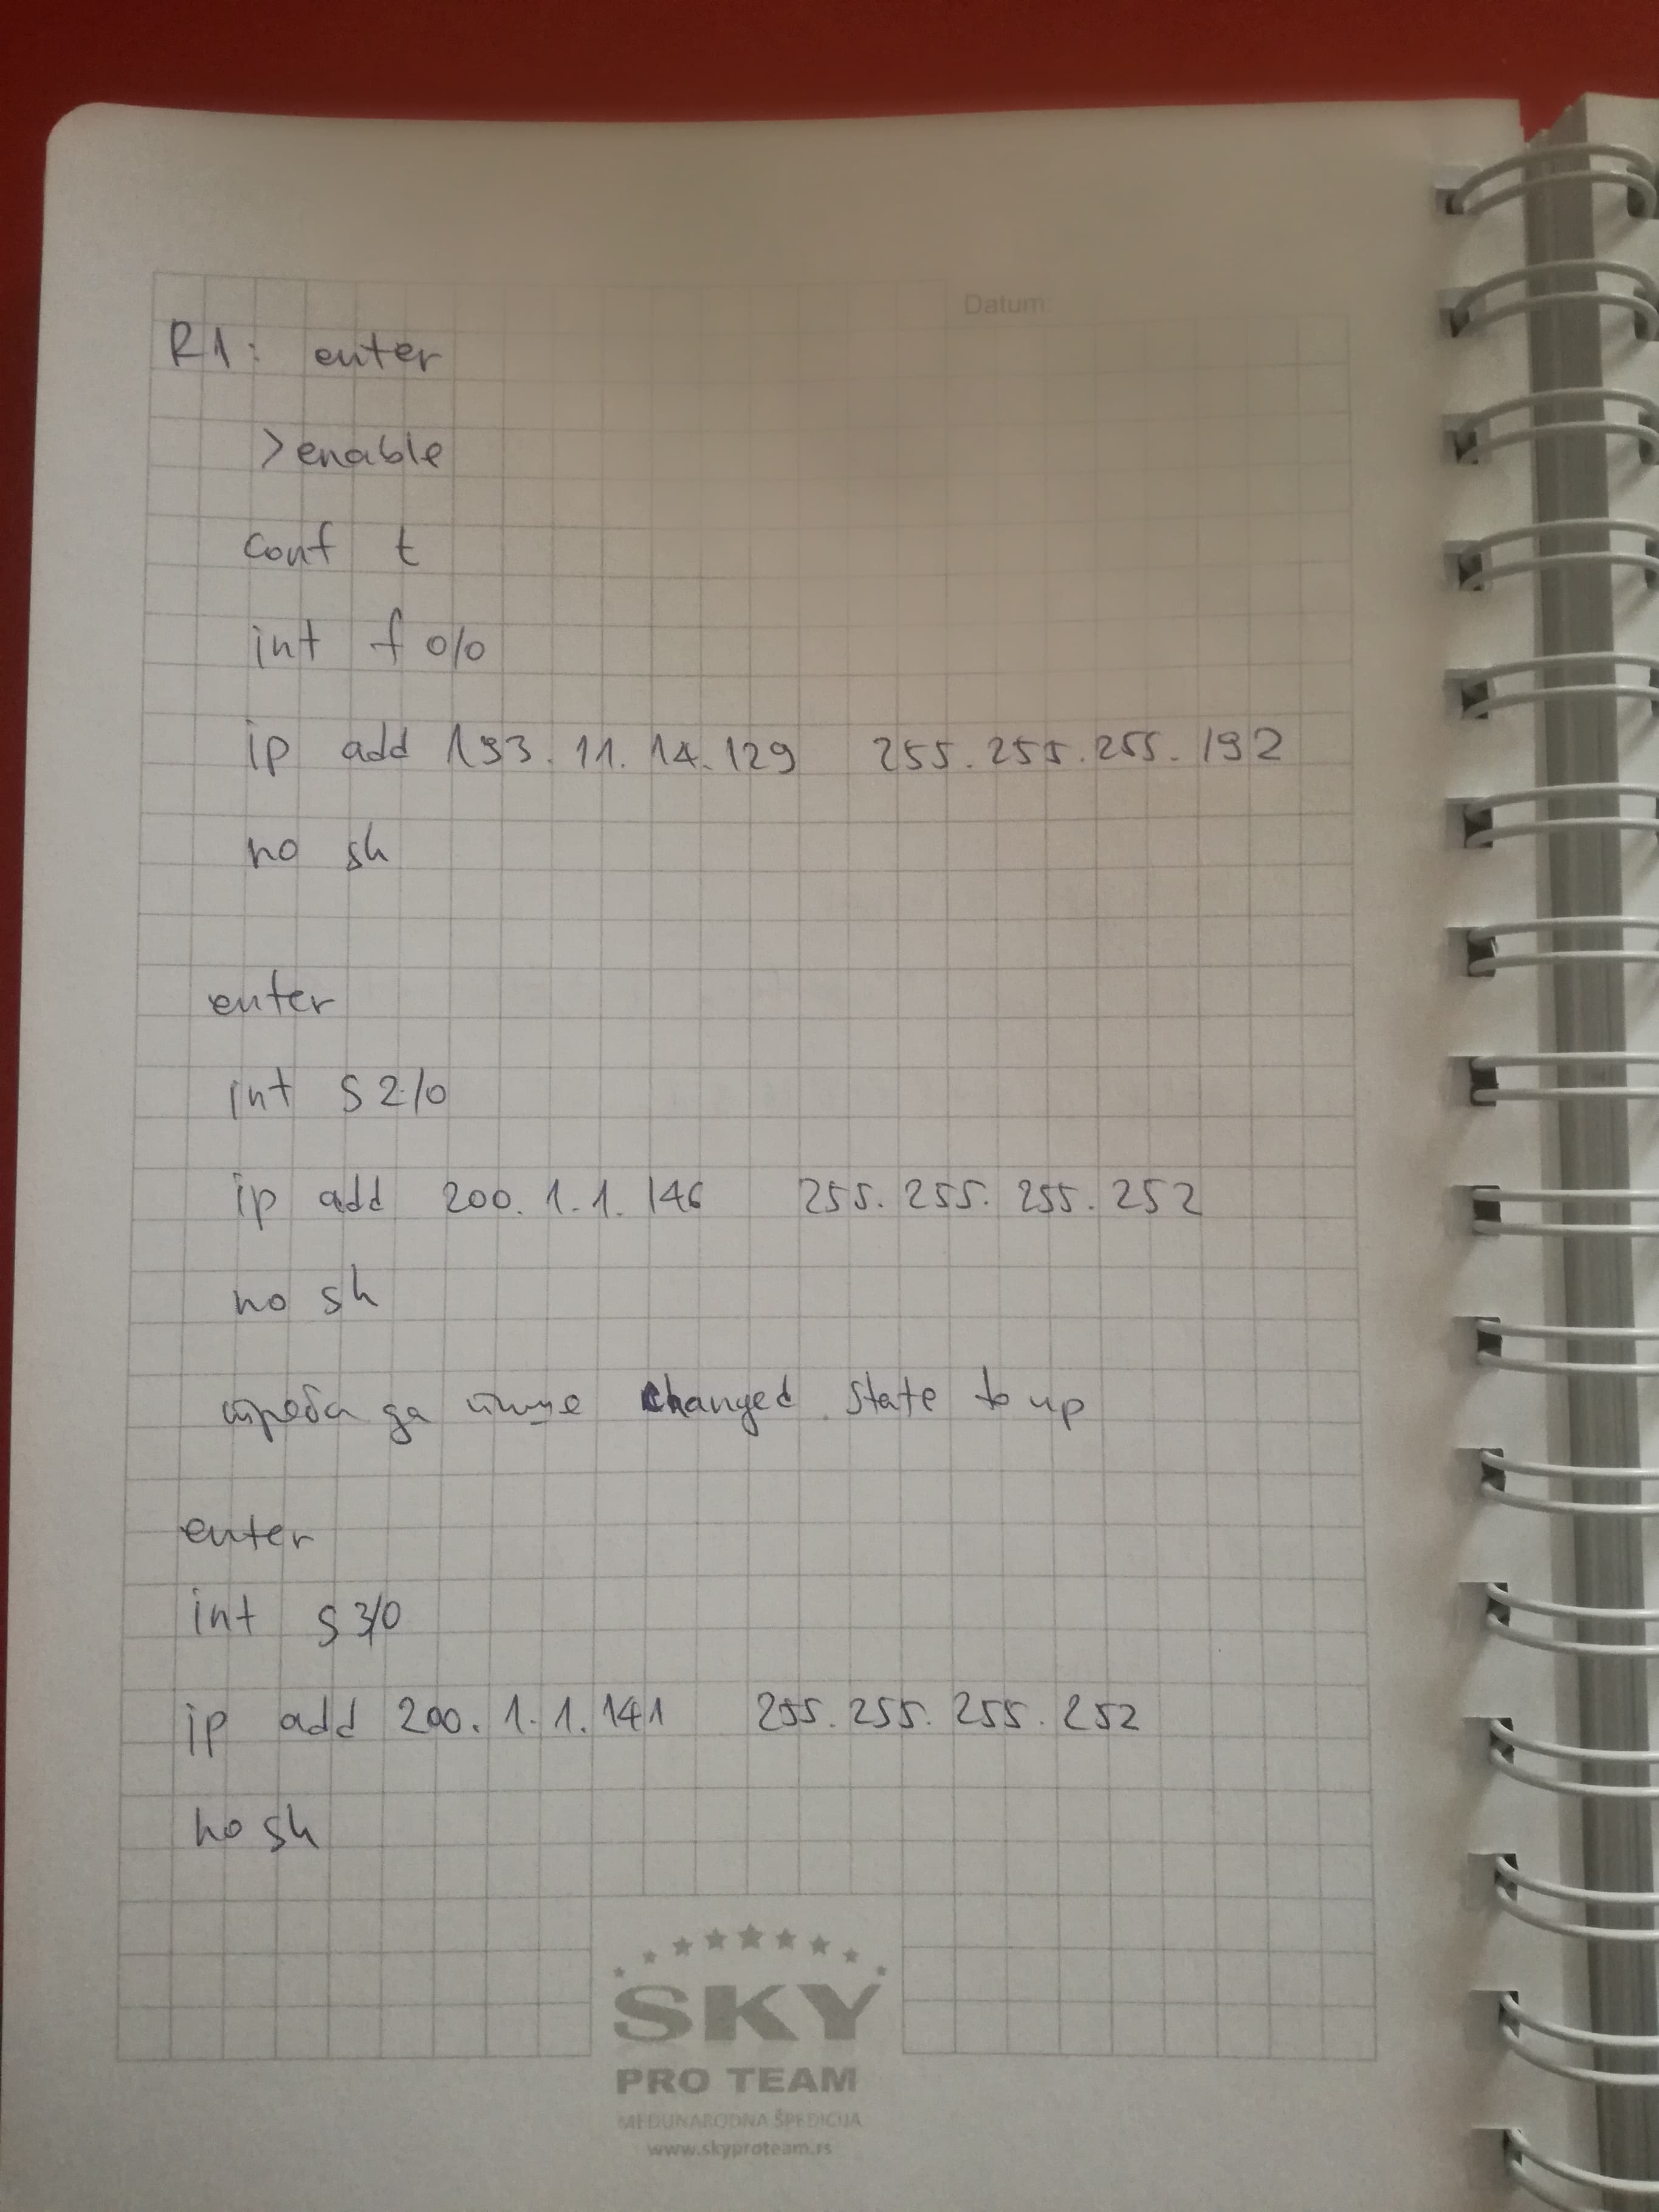 Datum:
R1: enter
>enable
conf t
int f 0/0
ip add 193.11.14.129 255.255.255.192
no sh
enter
int S 2/0
ip add 200.1.1.146 255.255.255.252
no sh
треба да пише changed state to up
enter
int S 3/0
ip add 200.1.1.141 255.255.255.252
no sh
SKY
PRO TEAM
MEĐUNARODNA ŠPEDICIJA
www.skyproteam.rs